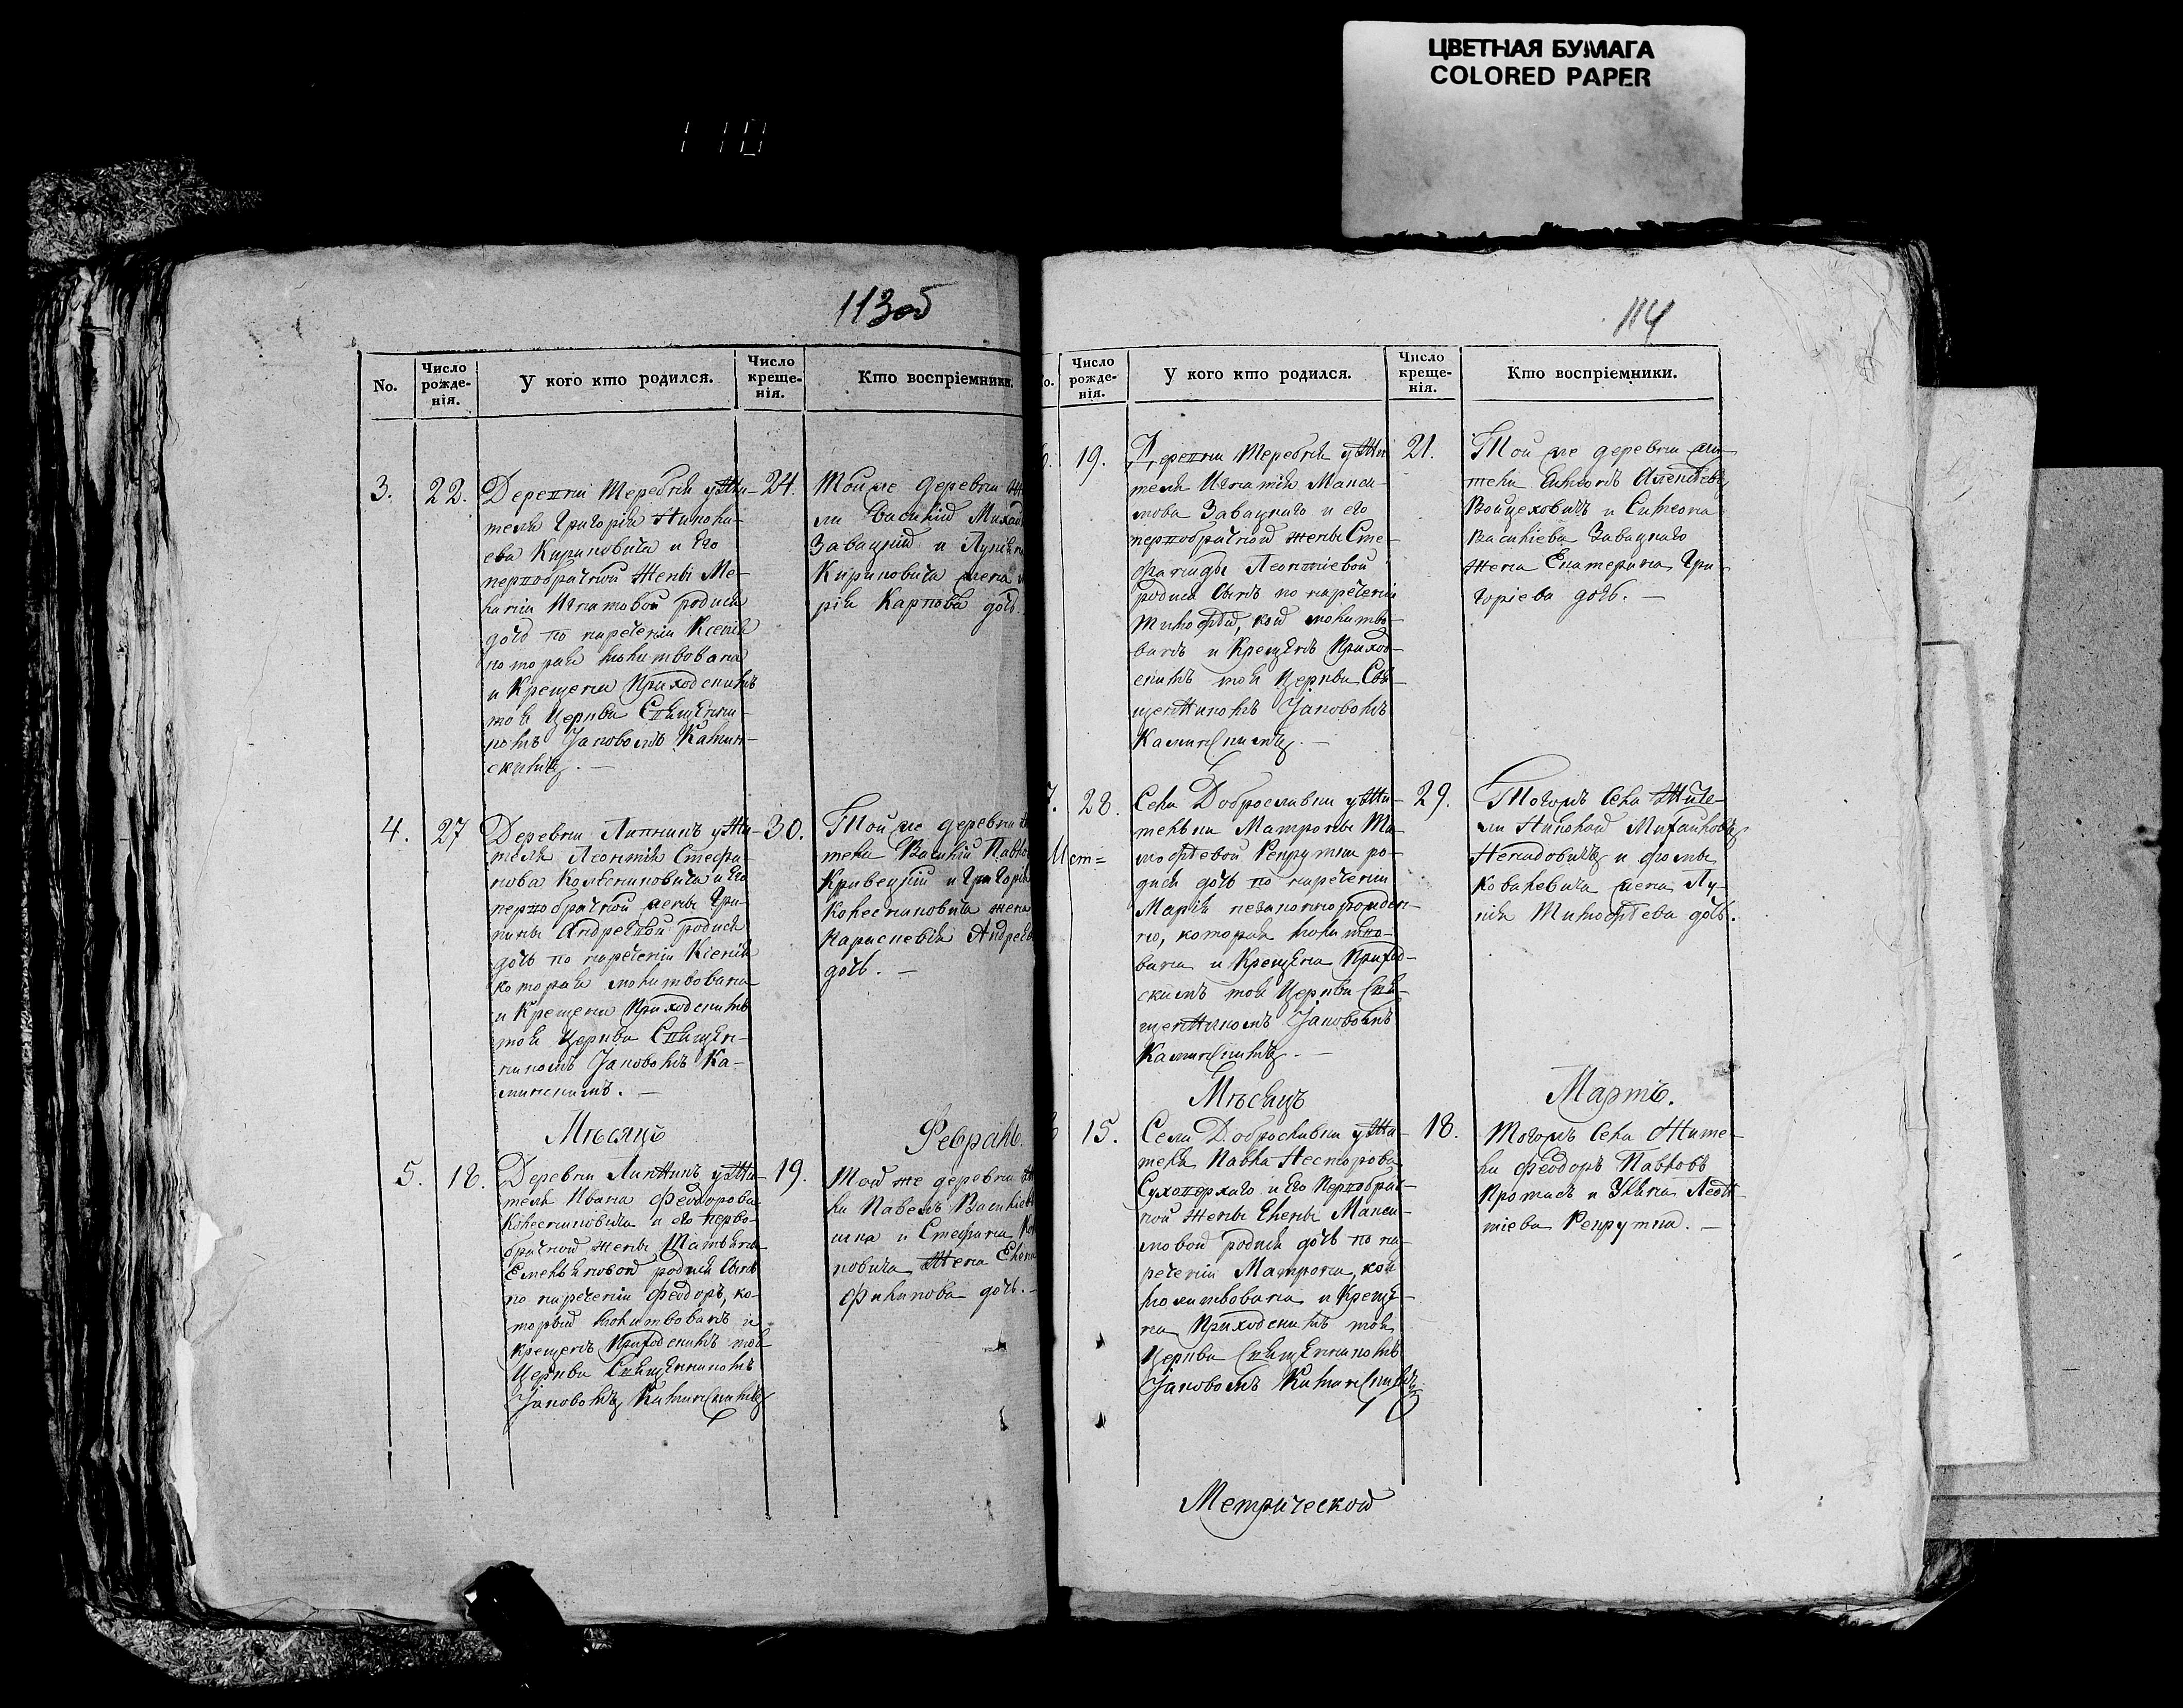 ЦВЕТНАЯ БУМАГА
COLORED PAPER
110
113об
No.
Число рожде-нія.
У кого кто родился.
Число креще-нія.
Кто воспріемники.
3.
22.
Деревни Теребня у жи-
теля Григорія Николи-
ева Кириновича и его
первобрачной жены Ме-
ланіи Игнатовой родися
дочь по нареченіи Ксенія
которая молитвована
и крещена приходскимъ
тоя церкви священни-
комъ Іаковомъ Камин-
скимъ. —
24.
Той же деревни
ли Василій Михай
Завацкій и Лукія
Кириновича жена
рія Карпова дочь.
4.
27
Деревни Липникъ у жи-
теля Леонтія Стефа-
нова Колесниковича и его
первобрачной жены Ири-
нины Андреевой родися
дочь по нареченіи Ксенія
которая молитвована
и крещена приходскимъ
тоя церкви священ-
никомъ Іаковомъ Ка-
минскимъ. —
30.
Той же деревни
тели Василій Павло
Кривецкій и Григорія
Колесниковича жена
Андреева
дочь. —
Мѣсяцъ
Февраль.
5.
18.
Деревни Липникъ у жи-
теля Ивана Феодорова
Колесниковича и его перво-
брачной жены Татьяны
Емельяновой родися сынъ
по нареченіи Феодоръ, ко-
торый молитвованъ и
крещенъ приходскимъ тоя
церкви священникомъ
Іаковомъ Каминскимъ
19.
Той же деревни
ли Павелъ Василіев
и Стефана
новича жена Елена
Филипова дочь. —
114
Число рожде-нія.
У кого кто родился.
Число креще-нія.
Кто воспріемники.
19.
Деревни Теребня у жи
теля Игнатія Макси-
мова Завацкаго и его
первобрачной жены Сте-
фаниды Леонтіевой
родися сынъ по нареченіи
Тимофей, кой молитво-
ванъ и крещенъ приход-
скимъ тоя церкви свя-
щенникомъ Іаковомъ
Каминскимъ. —
21.
Той же деревни жи-
тели Алексѣевъ
Войцеховичъ и Симеона
Василіева Завацкаго
жена Екатерина Гри-
горіева дочь. —
7.
28.
Села Доброславки у жи-
тельки Матроны Ти-
мофеевой Рекрутки ро-
дися дочь по нареченіи
Марія незаконнорожден-
но, которая молитво-
вана и крещена приход-
скимъ тоя церкви свя-
щенникомъ Іаковомъ
Каминскимъ. —
29.
Тогожъ села жите-
ли Николай Михайловъ
Ненадовичъ и Фомы
Ковалевича жена Лу-
кія Тимофеева дочь.
Мѣсяцъ
Мартъ.
15.
Села Доброславки у жи-
теля Павла Несторова
Сухоперкаго и его первобрач-
ной жены Елены Макси-
мовой родися дочь по на-
реченіи Матрона, коя
молитвована и креще-
на приходскимъ тоя
церкви священникомъ
Іаковомъ Каминскимъ
18.
Тогожъ села жите-
ли Феодоръ Павловъ
Протасъ и Уліана Леон-
тіева Рекрутка. —
Метрической